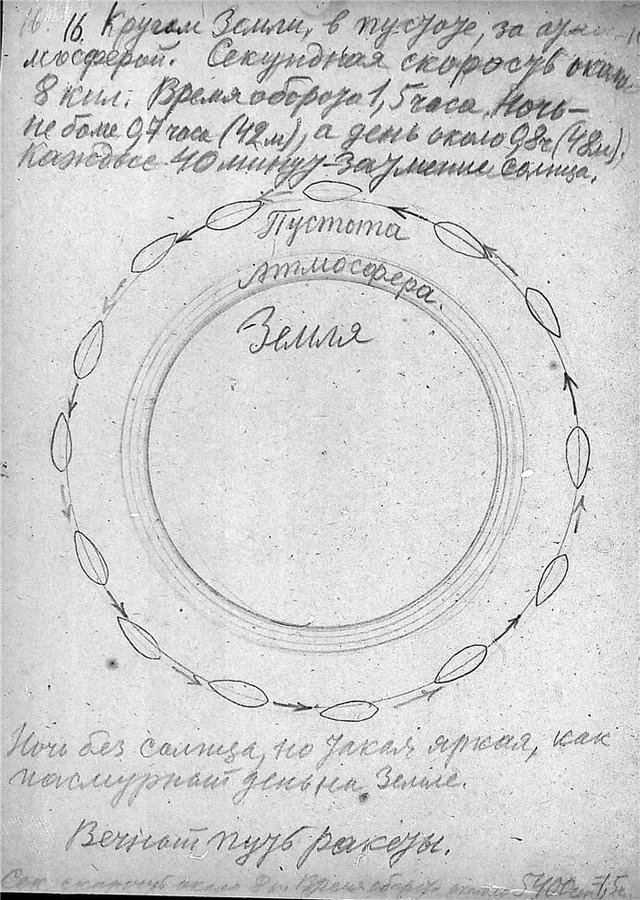 16. 16. Кругом Земли, в пустоте, за
мосферой. Секундная скорость около
8 кил. Время оборота 1,5 часа. Ночь –
не более 0,7 часа (42 м), а день около 0,8 ч (48 м).
Каждые 40 минут – затмение солнца.
Пустота
Атмосфера.
Земля
Ночь без солнца, но такая яркая, как
пасмурный день на Земле.
Вечный путь ракеты.
Сек. скорость около 8 к. Время оборота около 5400 1,5 ч.